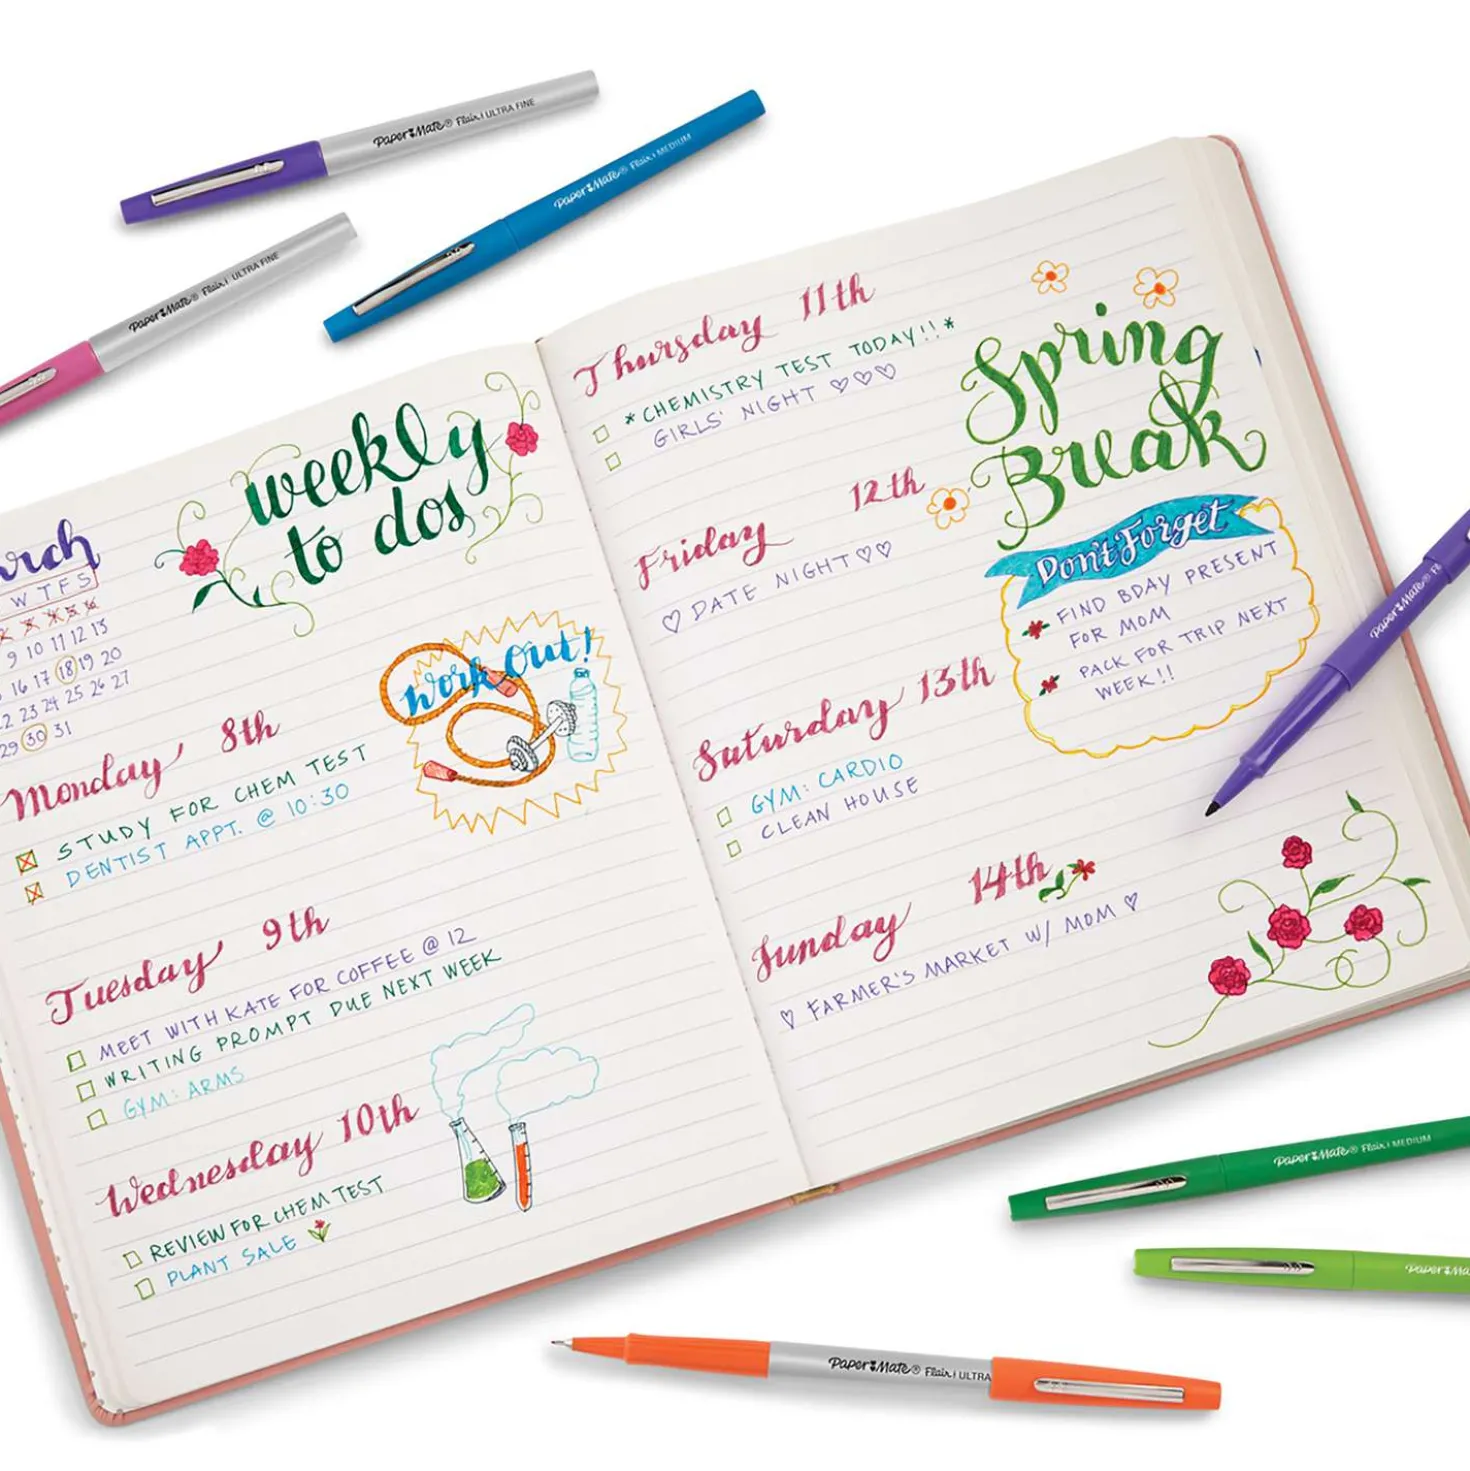 Paper Mate® Flair | ULTRA FINE
Paper Mate® Flair | MEDIUM
Paper Mate® Flair | ULTRA FINE
weekly
to dos
rch
W T F S
9 10 11 12 13
16 17 18 19 20
22 23 24 25 26 27
29 30 31
Monday 8th
STUDY FOR CHEM TEST
DENTIST APPT. @ 10:30
Work Out!
Tuesday 9th
MEET WITH KATE FOR COFFEE @ 12
WRITING PROMPT DUE NEXT WEEK
GYM: ARMS
Wednesday 10th
REVIEW FOR CHEM TEST
PLANT SALE
Thursday 11th
*CHEMISTRY TEST TODAY!!*
GIRLS' NIGHT ♡♡♡
Friday 12th
♡ DATE NIGHT ♡♡
Saturday 13th
GYM: CARDIO
CLEAN HOUSE
Sunday 14th
♡ FARMER'S MARKET W/ MOM ♡
Spring
Break
Don't Forget
FIND BDAY PRESENT
FOR MOM
PACK FOR TRIP NEXT
WEEK!!
Paper Mate® Fl
Paper Mate® Flair | MEDIUM
Paper Ma
Paper Mate® Flair | ULTRA